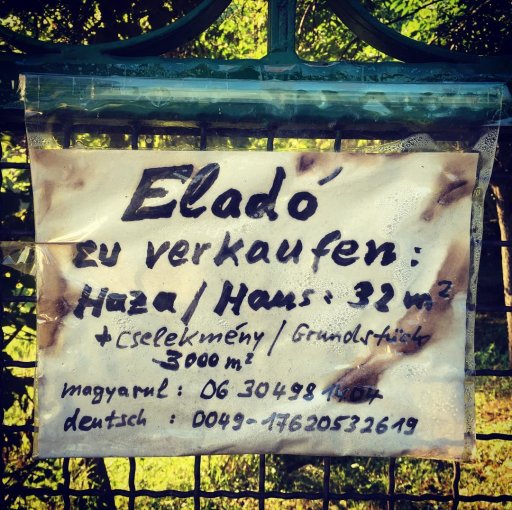 Eladó
zu verkaufen:
Haza / Haus: 32 m²
+ cselekmény / Grundstück
3000 m²
magyarul: 06 30 4981404
deutsch : 0049-17620532619